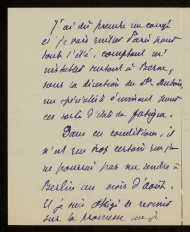 J'ai dû prendre un congé
et je vais quitter Paris pour
tout l'été, comptant m'
installer surtout à Berne,
sous la direction du Dr. Dubois,
un spécialiste éminent pour
ces sortes d'état de fatigue.
Dans ces conditions, il
n'est que trop certain que je
ne pourrai pas me rendre à
Berlin au mois d'août.
Et je suis obligé de revenir
sur la promesse que je